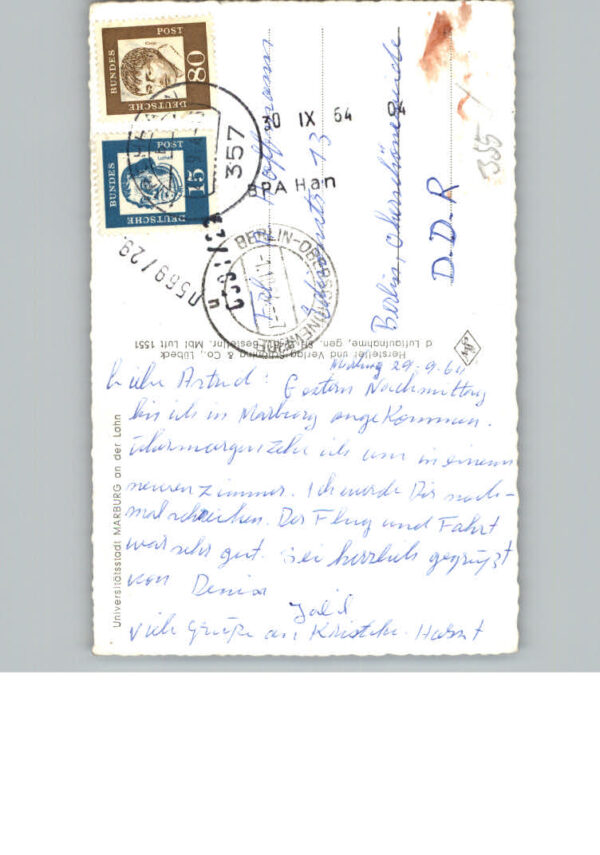 DEUTSCHE
BUNDES
POST
80
DEUTSCHE
BUNDES
POST
15
357
30 IX 64
BPA Han
0569/29
BERLIN-OBERSCHÖNEWEIDE
Hoffmann
13
Berlin, Oberschöneweide
D.D.R
355
Hersteller und Verlag Schöning & Co., Lübeck
gen. Bestellnr. Mbl Luft 1551
d Luftaufnahme,
Universitätsstadt MARBURG an der Lahn
Marburg 29.9.64
Liebe Astrid! Gestern Nachmittag
bin ich in Marburg angekommen.
Übermorgen ziehe ich um in einem
neuen Zimmer. Ich werde Dir noch-
mal schreiben. Der Flug und Fahrt
war sehr gut. Sei herzlich gegrüßt
von Deinem
Jalil
Viele Grüße an Horst